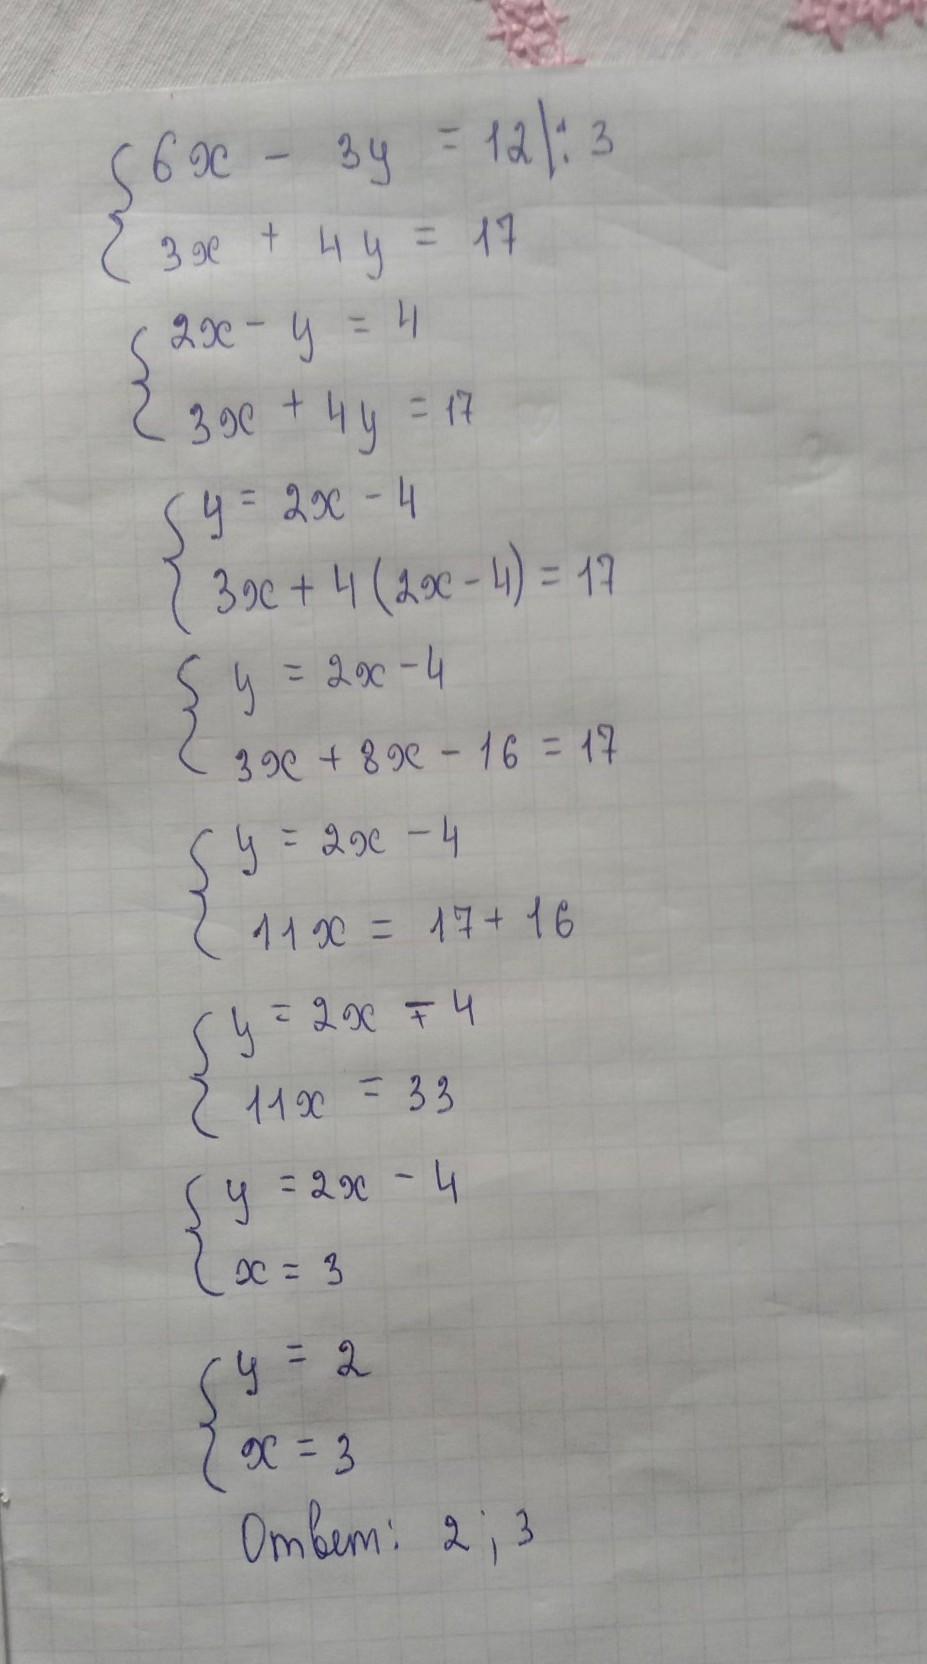 {6x - 3y = 12 |: 3
3x + 4y = 17
{2x - y = 4
3x + 4y = 17
{y = 2x - 4
3x + 4(2x - 4) = 17
{y = 2x - 4
3x + 8x - 16 = 17
{y = 2x - 4
11x = 17 + 16
{y = 2x - 4
11x = 33
{y = 2x - 4
x = 3
{y = 2
x = 3
Ответ: 2; 3